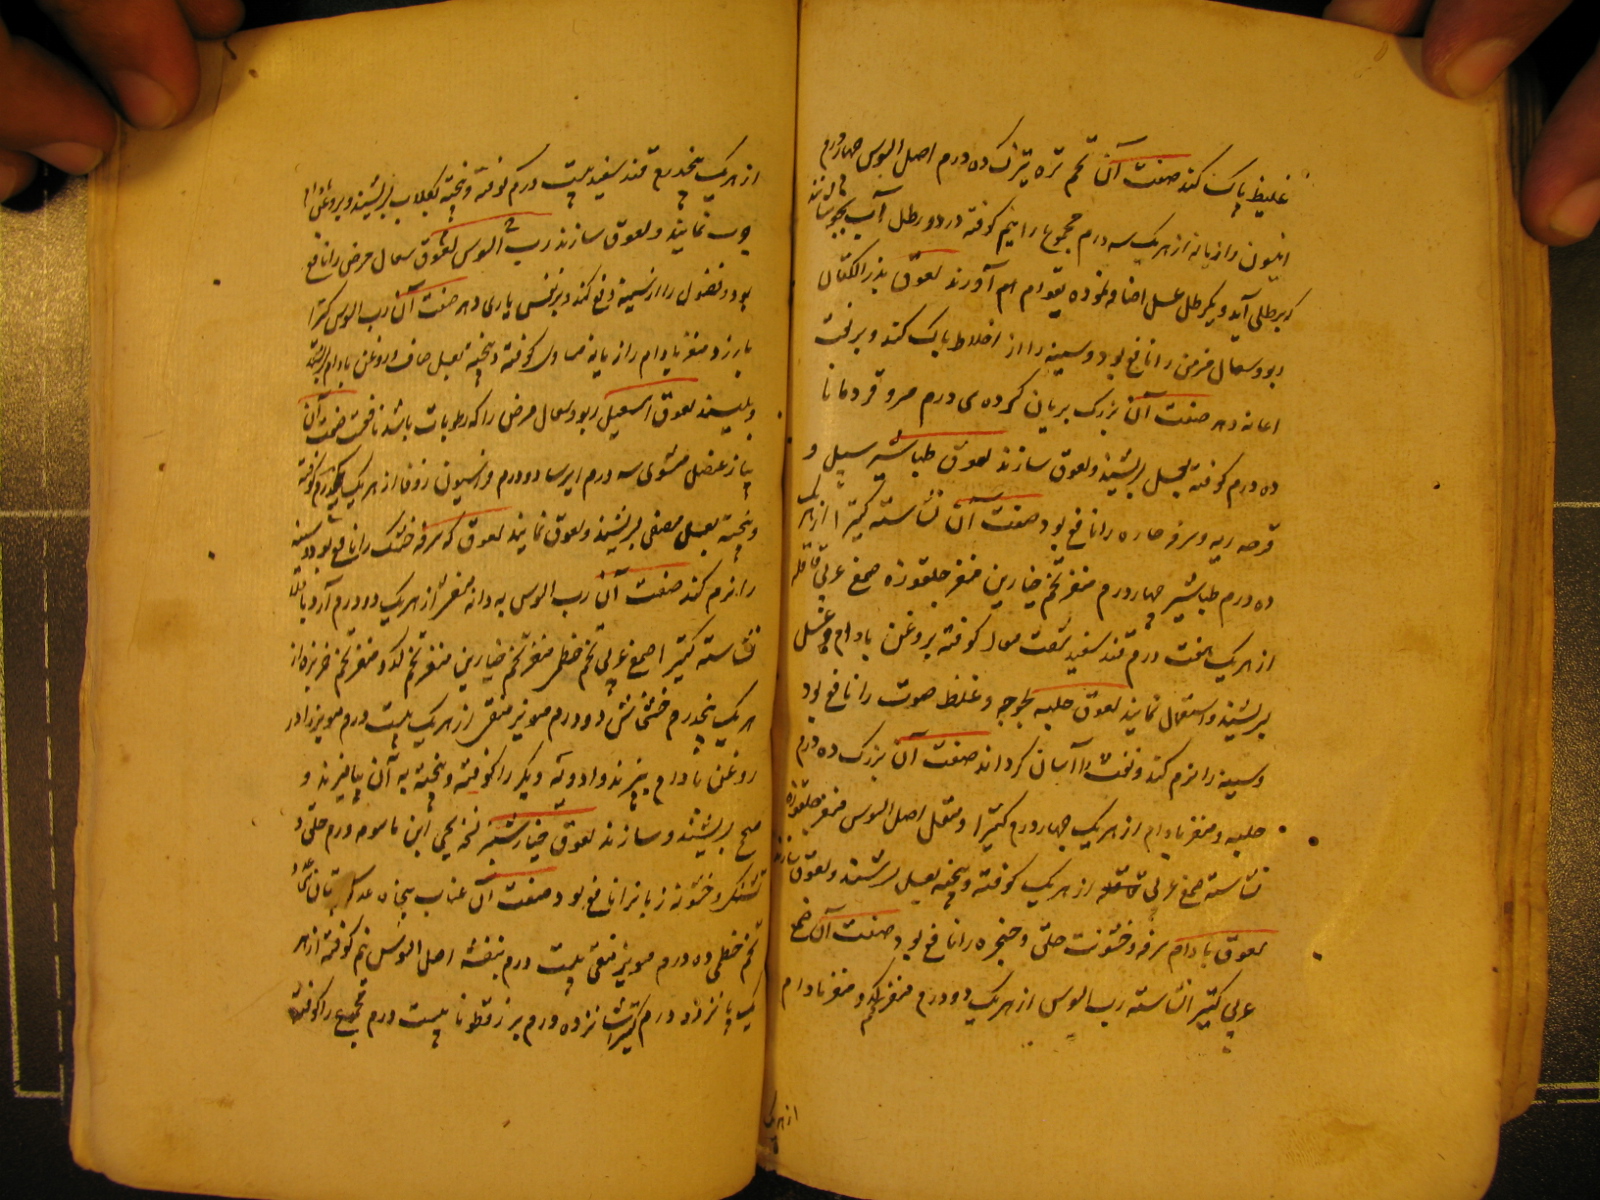 غلیظ پاک کند صفت آن تخم تره تیزک ده درم اصل السوس چهار درم
انیسون رازیانه از هریک سه درم مجموع را نیم کوفته در دو رطل آب بجوشانند
که برطلی آید و یکرطل عسل اضافه نموده بقوام آورند لعوق بذر الکتان
ربو و سعال مزمن را نافع بود و سینه را از اخلاط پاک کند و بر نفث
اعانه دهد صفت آن بزرک بریان کرده سی درم مرو قردمانا
ده درم کوفته بعسل بسرشند و لعوق سازند لعوق طباشیر سل و
قرحه ریه و سرفه حاره را نافع بود صفت آن نشاسته کتیرا از هریک
ده درم طباشیر چهار درم مغز تخم خیارین مغز جلغوزه صمغ عربی قاقله
از هریک هفت درم قند سفید شصت درم کوفته بروغن بادام و عسل
بسرشند و استعمال نمایند لعوق حلبه بحوحه و غلظ صوت را نافع بود
و سینه را نرم کند و نفث را آسان کرداند صفت آن بزرک ده درم
حلبه و مغز بادام از هریک چهار درم کتیرا و مقل اصل السوس مغز جلغوزه
نشاسته صمغ عربی قاقله از هریک کوفته و پخته بعسل بسرشند و لعوق سازند
لعوق بادام سرفه و خشونت حلق و حنجره را نافع بود صفت آن صمغ
عربی کتیرا نشاسته رب السوس از هریک دو درم مغز تخم کدو مغز بادام
از هریک
از هریک پنجدرم قند سفید بیست درم کوفته و پخته بکلاب بسرشند و بروغن بادام
چرب نمایند و لعوق سازند رب السوس لعوق سعال مرض را نافع
بود و فضول را از سینه دفع کند و بر نفس یاری دهد صفت آن رب السوس کتیرا
بارزد مغز بادام رازیانه مساوی کوفته و پخته بعسل صاف و روغن بادام بسرشند
و بلیسند لعوق اسقیل ربو و سعال مرض را که رطوبات باشد نافعست صفت آن
پیاز عنصل مشوی سه درم ایرسا دو درم فراسیون زوفا از هریک یکدرم کوفته
و پخته بعسل مصفی بسرشند و لعوق نمایند لعوق که سرفه خشک را نافع بود و سینه
را نرم کند صفت آن رب السوس به دانه مقشر از هریک دو درم آرد باقلا
نشاسته کتیرا صمغ عربی تخم خطمی مغز تخم خیارین مغز تخم کدو مغز تخم خربزه از
هریک پنجدرم خشخاش دو درم مویز منقی از هریک بیست درم مویز را در
روغن بادام بپزند و ادویه دیگر را کوفته و پخته به آن بیامیزند و
صبح بسرشند و سازند لعوق خیارشنبر نسخه یحیی ابن ماسویه ورم حلق و
تشنکی و خشونه زبان را نافع بود صفت آن عناب پنجاه عدد سپستان
تخم خطمی ده درم مویز منقی بیست درم بنفشه اصل السوس نیم کوفته از هر
یک پانزده درم کتیرا شانزده درم بزرقطونا بیست درم مجموع را کوفته